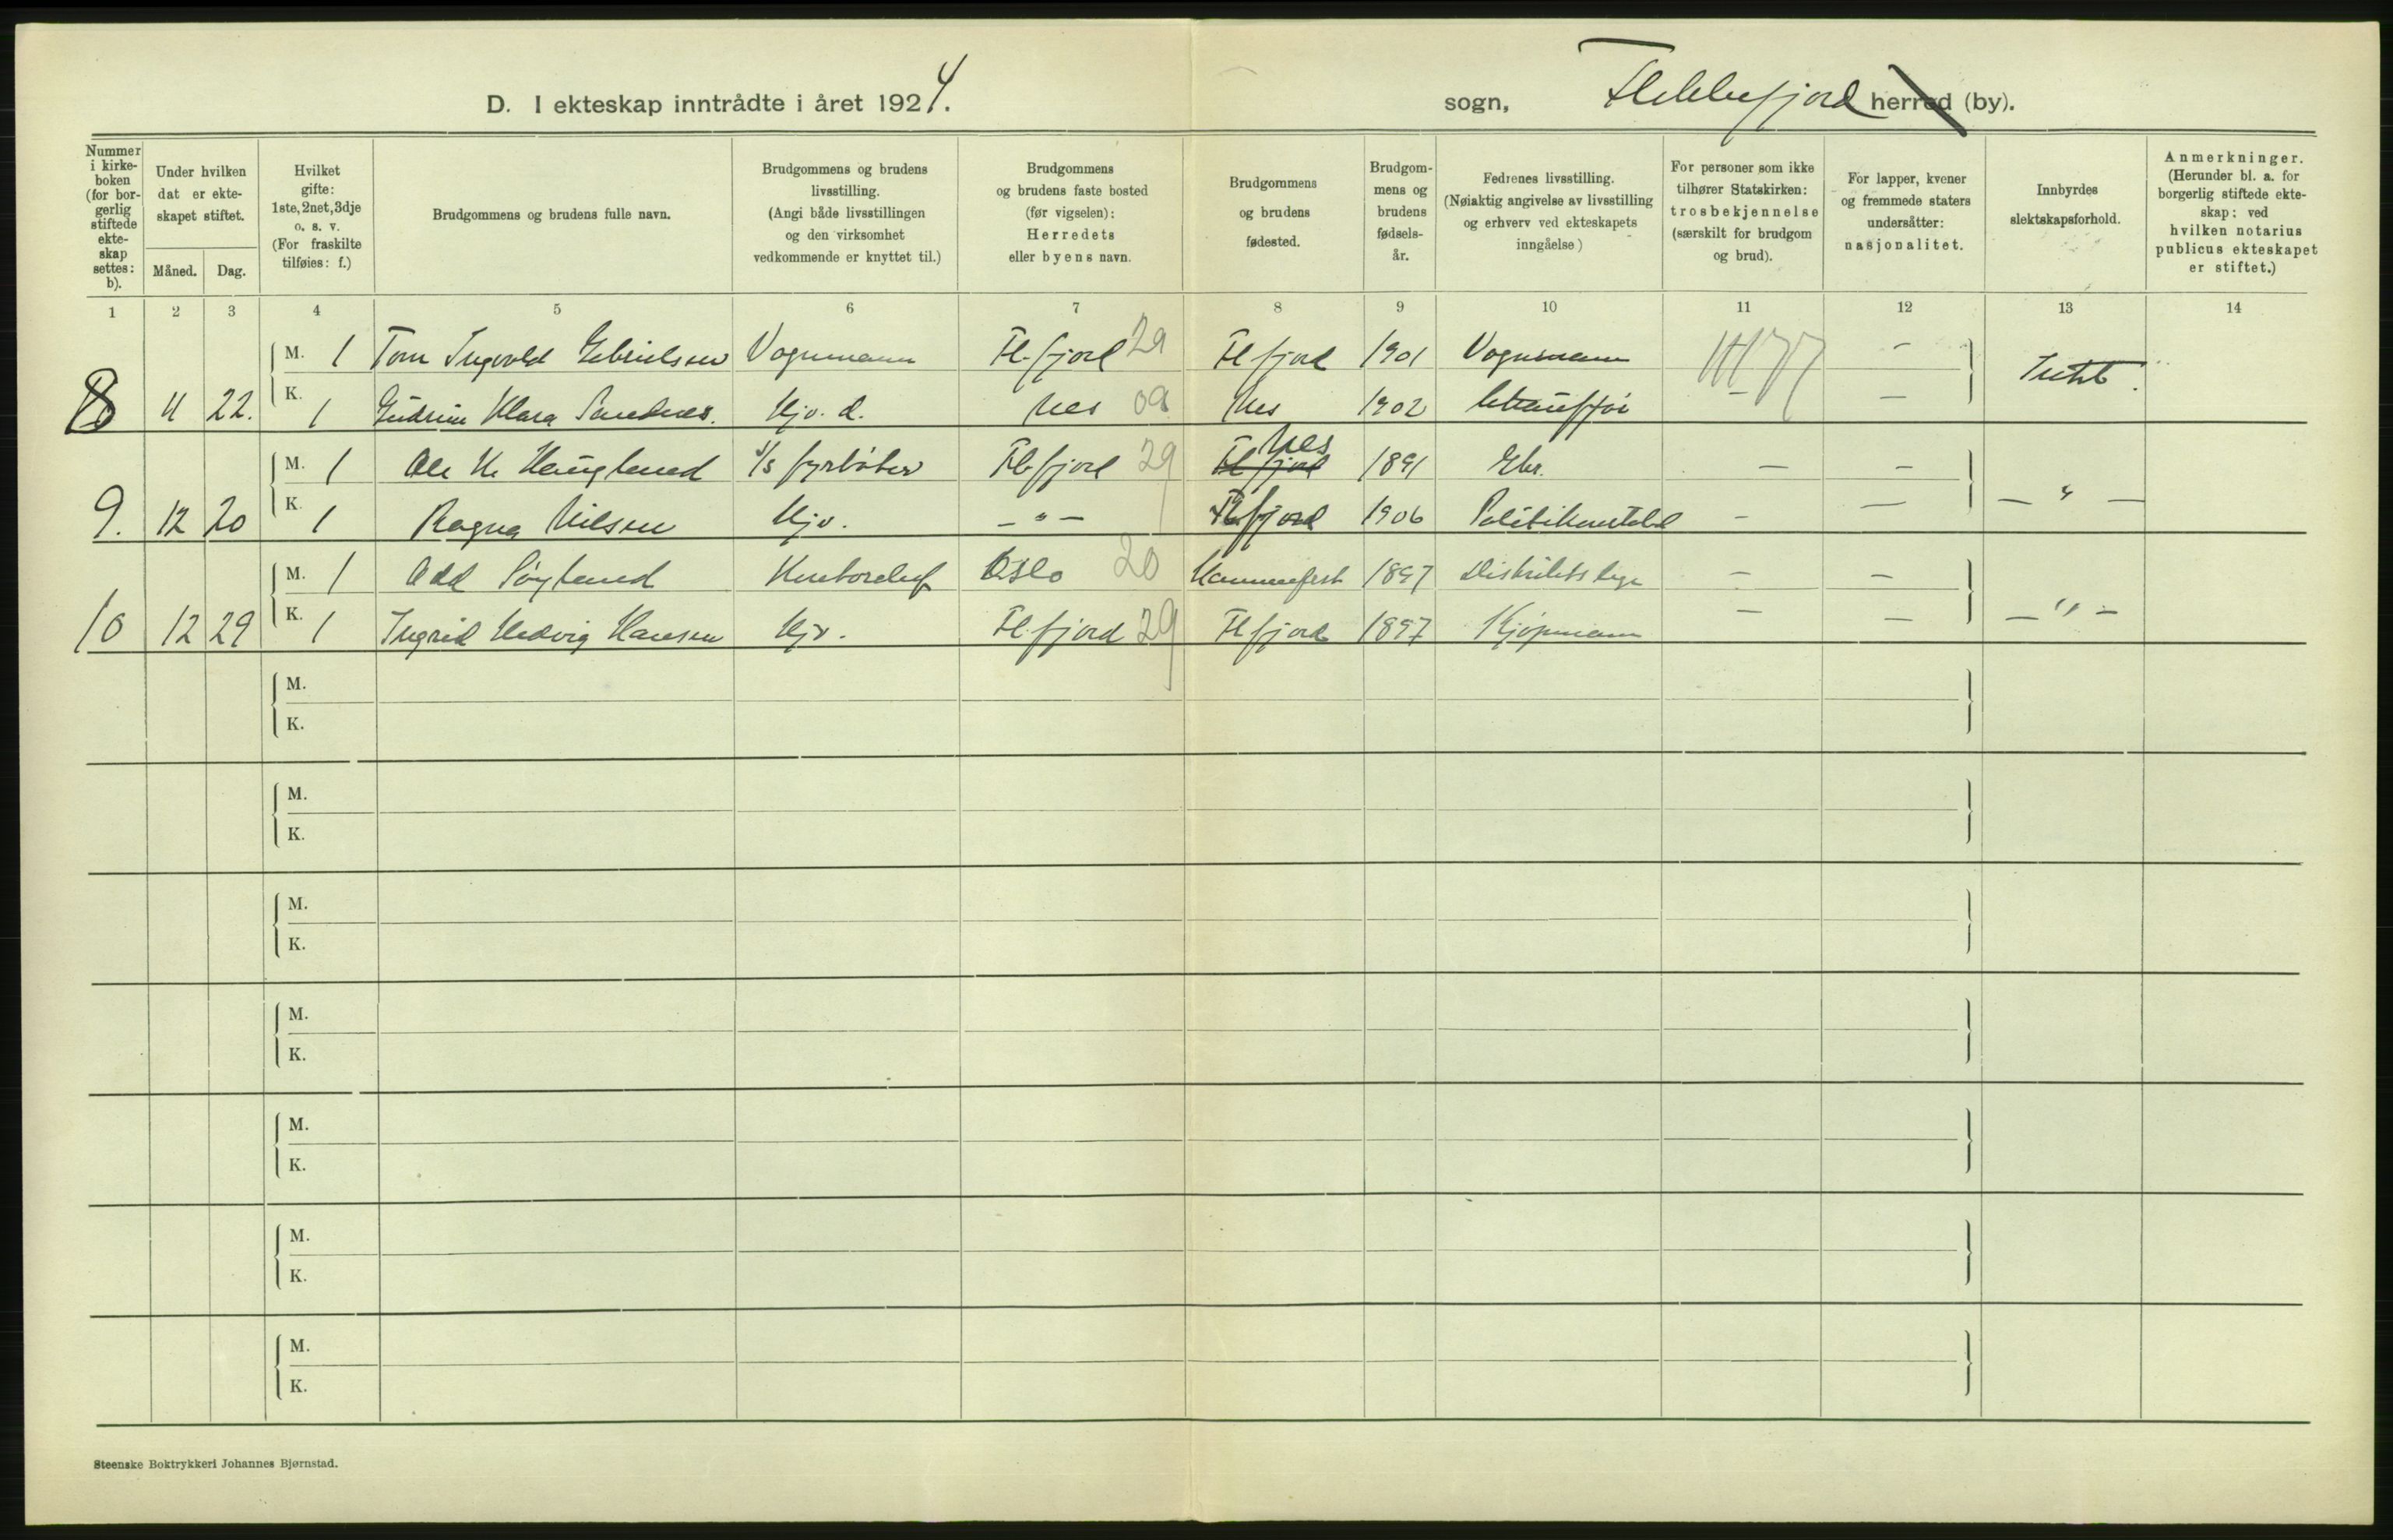 D. I ekteskap inntrådte i året 1924.
sogn, Flekkefjord herred (by).
Nummer i kirkeboken (for borgerlig stiftede ekteskap settes: b).
Under hvilken dat er ekteskapet stiftet.
Måned. Dag.
Hvilket gifte: 1ste, 2net, 3dje o. s. v. (For fraskilte tilføies: f.)
Brudgommens og brudens fulle navn.
Brudgommens og brudens livsstilling. (Angi både livsstillingen og den virksomhet vedkommende er knyttet til.)
Brudgommens og brudens faste bosted (før vigselen): Herredets eller byens navn.
Brudgommens og brudens fødested.
Brudgommens og brudens fødselsår.
Fedrenes livsstilling. (Nøiaktig angivelse av livsstilling og erhverv ved ekteskapets inngåelse)
For personer som ikke tilhører Statskirken: trosbekjennelse (særskilt for brudgom og brud).
For lapper, kvener og fremmede staters undersåtter: nasjonalitet.
Innbyrdes slektskapsforhold.
Anmerkninger. (Herunder bl. a. for borgerlig stiftede ekteskap: ved hvilken notarius publicus ekteskapet er stiftet.)
1 2 3 4 5 6 7 8 9 10 11 12 13 14
M. 1 Tom Ingvold Gabrielsen Vognmann Fl.fjord 29 Fl fjord 1901 Vognmann -
8 11 22. K. 1 Gudrun Klara Sandnes. Hjv. d. Nes 09 Nes 1902 - - Intet.
M. 1 Ole K. Haugland d/s fyrbøter Fl.fjord 29 Fl fjord Nes 1891 Gbr. - -
9. 12 20 K. 1 Ragna Nilsen Hjv. - " - Fl.fjord 1906 Politikonstabel - - - " -
M. 1 Odd Søyland Kontorchef Oslo 20 Hammerfest 1897 Distriktslege - -
10 12 29 K. 1 Ingrid Hedvig Hansen Hjv. Fl.fjord 29 Fl fjord 1897 Kjøpmann - - - " -
M.
K.
M.
K.
M.
K.
M.
K.
M.
K.
M.
K.
M.
K.
Steenske Boktrykkeri Johannes Bjørnstad.